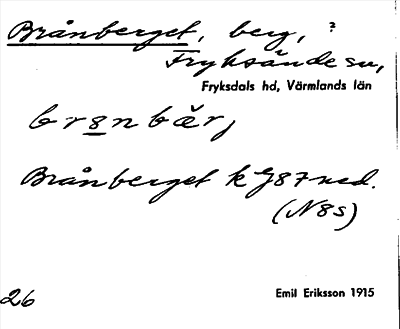 Brånberget, berg, ?
Fryksände sn,
Fryksdals hd, Värmlands län
brȣnbǣrj
Brånberget k J87 ned.
(N8s)
26
Emil Eriksson 1915